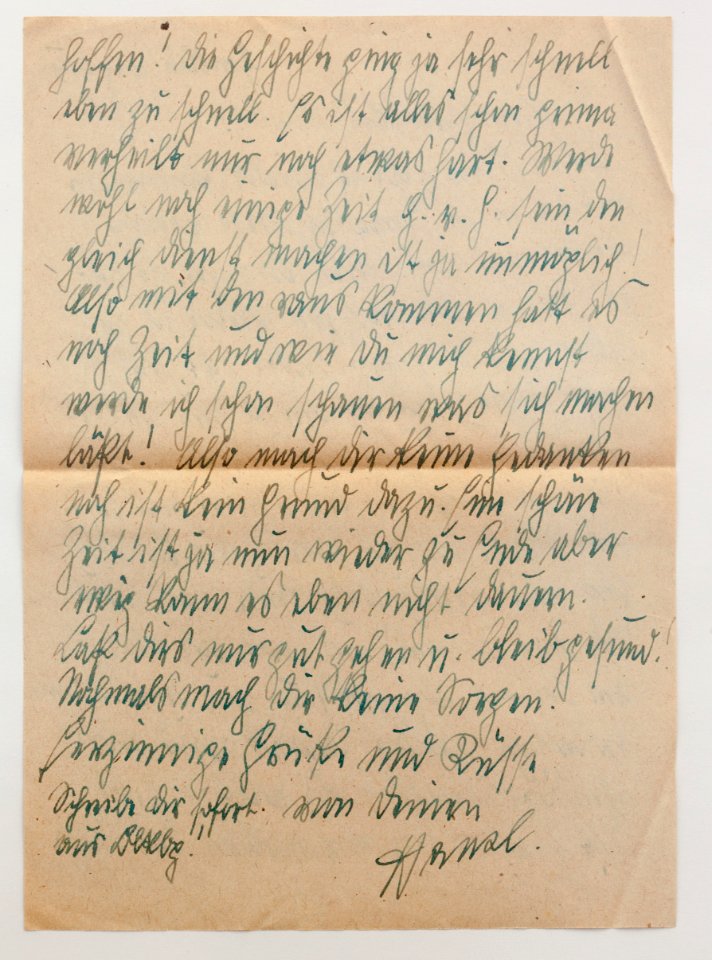 hoffen! Die Geschichte ging ja sehr schnell
eben zu schnell. Es ist alles schon prima
verheilt nur noch etwas hart. Werde
wohl noch einige Zeit g. v. H. sein den
gleich Dienst machen ist ja unmöglich!
Also mit den raus kommen hatt es
noch Zeit und wie Du mich kennst
werde ich schon schauen was sich machen
läßt! Also mach dir keine Gedanken
noch ist kein Grund dazu. Eine schöne
Zeit ist ja nun wieder zu Ende aber
ewig kann es eben nicht dauern.
Laß dirs nur gut gehen u. bleib gesund!
Nochmals mach dir keine Sorgen.
Herzinnige Grüße und Küsse
Schreibe dir sofort. von Deinen
aus!
Hansl.